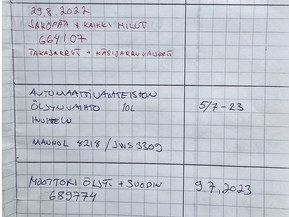 29.8.2022
JAKOPÄÄ + KAIKKI MUUT
664107
TAKAJARRUT + KÄSIJARRUVAIJERIT
AUTOMAATTIVAIHTEISTON
ÖLJYNVAIHTO 10L 5/7-23
HUUHTELU
MANNOL 8218 / JWS 3309
MOOTTORI ÖLJY + SUODIN 9.7.2023
689774